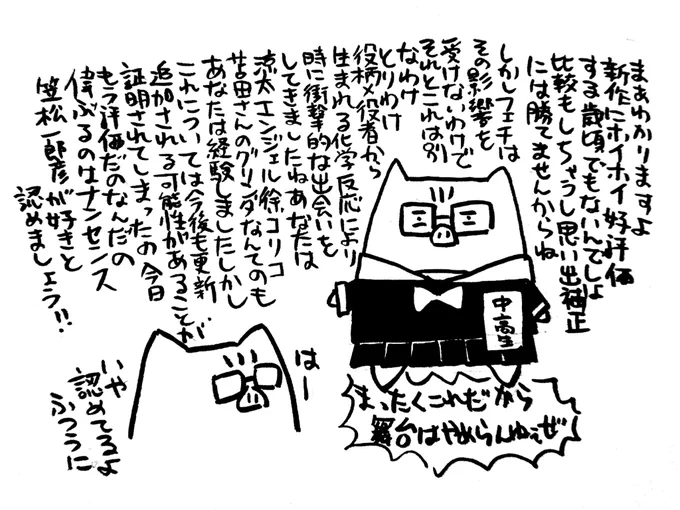 まあわかりますよ
新作にホイホイ好評価
する歳頃でもないんでしょ
比較もしちゃうし思い出補正
には勝てませんからね
しかしフェチは
その影響を
受けないわけで
それとこれは別
なわけ
とりわけ
役柄×役者から
生まれる化学反応により
時に衝撃的な出会いを
してきましたねあなたは
涼太エンジェル徐コリコ
吉田さんのグリーダなんてのも
あなたは経験しましたしかし
これについては今後も更新
追加される可能性があることが
証明されてしまったの今日
もう評価だのなんだの
偉ぶるのはナンセンス
笠松一郎彦が好きと
認めましょう!!
中高生
まったくこれだから
舞台はやめらんねぇぜ
はー
いや
認めてるよ
ふつうに